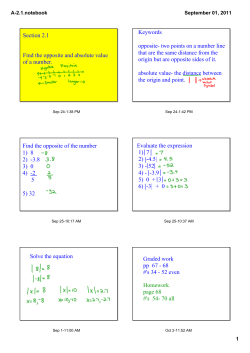 A-2.1.notebook
September 01, 2011
Section 2.1
Find the opposite and absolute value
of a number.
Sep 24-1:38 PM
Keywords
opposite- two points on a number line
that are the same distance from the
origin but are opposite sides of it.
absolute value- the distance between
the origin and point.
Sep 24-1:42 PM
Find the opposite of the number
1) 8 -8
2) -3.8 3.8
3) 0 0
4) -2 2
5 5
5) 32 -32
Sep 25-10:17 AM
Evaluate the expression
1) |7| = 7
2) |-4.5| = 4.5
3) -|52| = -52
4) -|-3.9| = -3.9
5) 0 +|3| = 0+3=3
6) |-3| + 0 = 3+0=3
Sep 25-10:37 AM
Solve the equation
|8|=8
|-8|=8
|x|=8 |x|=10 |x|=2.7
x=8,-8 x=10,-10 x=2.7,-2.7
Sep 1-11:00 AM
Graded work
pp 67 - 68
#'s 34 - 52 even
Homework
page 68
#'s 54- 70 all
Oct 3-11:52 AM
1